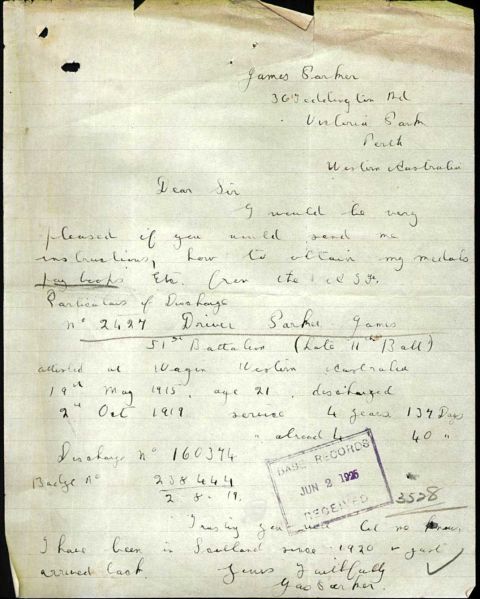 James Parker
36 Teddington Rd
Victoria Park
Perth
Western Australia
Dear Sir
I would be very
pleased if you would send me
instructions, how to obtain my medals
pay books Etc. from the
Particulars of Discharge
No 2427 Driver Parker James
51st Battalion (Late 11th Batt)
attested at Wagin Western Australia
19th May 1915, age 21, discharged
2nd Oct 1919 service 4 years 137 Days
" abroad 4 " 40 "
Discharge No 160374
Badge No 238444
2. 8. 19.
BASE RECORDS
JUN 2 1925
RECEIVED
3528
Trusting you will let me know
I have been in Scotland since 1920 & just
arrived back. Yours Faithfully
Jas Parker.